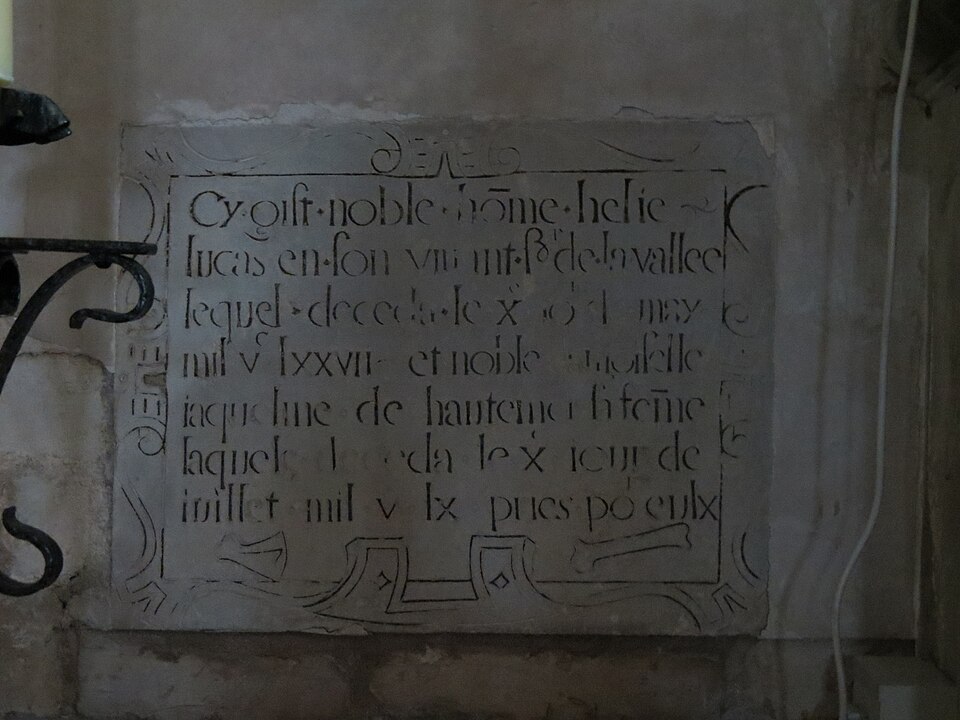 Cy·gist·noble·hōme·helie
lucas en·son vivant·sʳ de·la vallee
lequel·deceda·le xᵉ may
mil vᶜ lxxvii et noble
iaqueline de sa feme
laquele deceda le xᵉ iour de
iuillet mil v lx pries po eulx